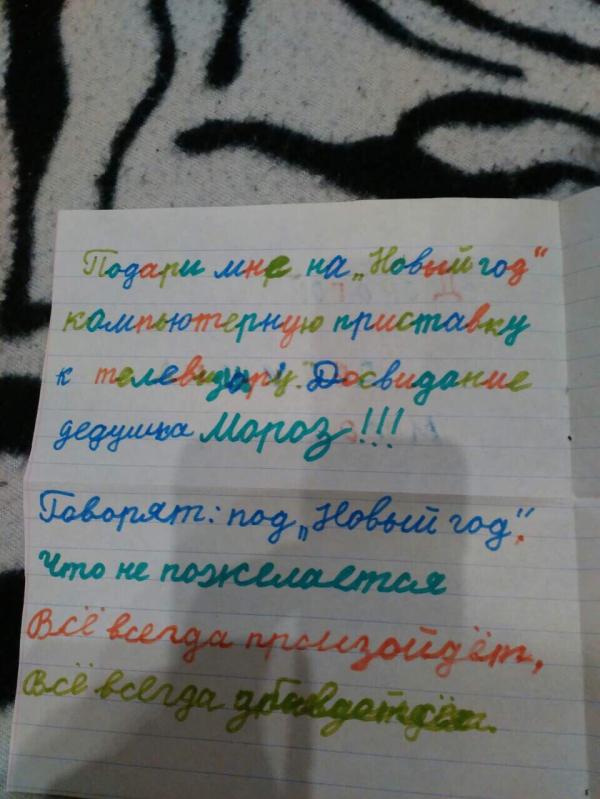 Подари мне на „Новый год"
компьютерную приставку
к телевизору. Досвидание
дедушка Мороз!!!
Говорят: под „Новый год".
Что не пожелается
Всё всегда произойдёт,
Всё всегда